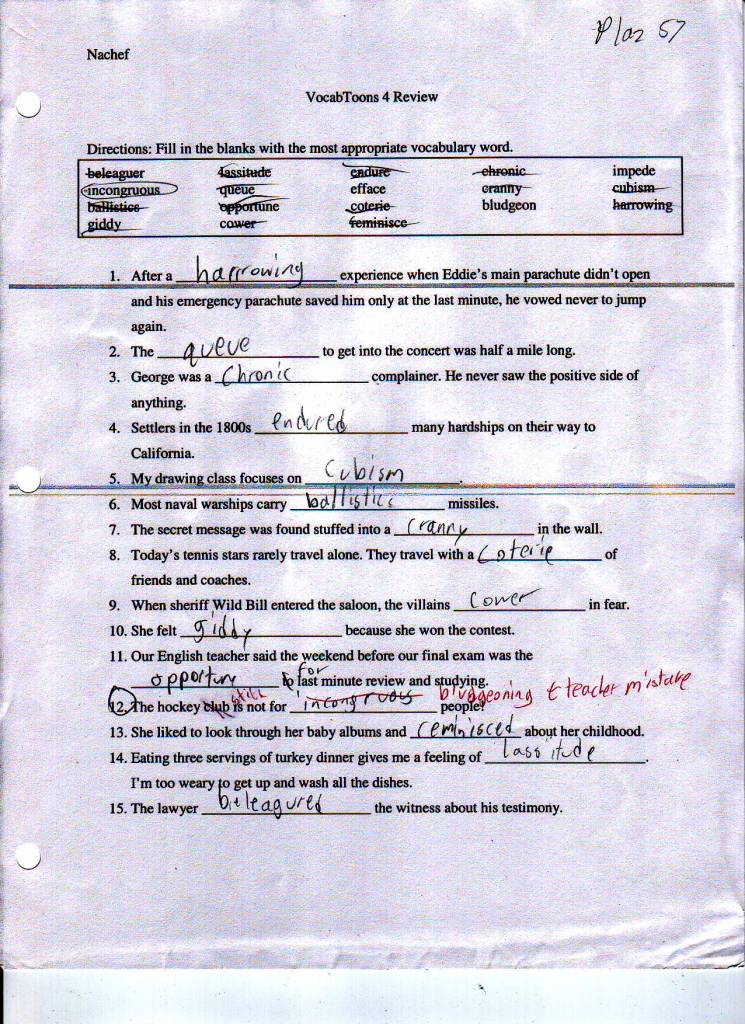 Plaz 57
Nachef
VocabToons 4 Review
Directions: Fill in the blanks with the most appropriate vocabulary word.
beleaguer lassitude endure chronic impede
incongruous queue efface cranny cubism
ballistics opportune coterie bludgeon harrowing
giddy cower feminisce
1. After a harrowing experience when Eddie's main parachute didn't open
and his emergency parachute saved him only at the last minute, he vowed never to jump
again.
2. The queue to get into the concert was half a mile long.
3. George was a Chronic complainer. He never saw the positive side of
anything.
4. Settlers in the 1800s endured many hardships on their way to
California.
5. My drawing class focuses on Cubism.
6. Most naval warships carry ballistics missiles.
7. The secret message was found stuffed into a Cranny in the wall.
8. Today's tennis stars rarely travel alone. They travel with a Coterie of
friends and coaches.
9. When sheriff Wild Bill entered the saloon, the villains Cower in fear.
10. She felt giddy because she won the contest.
11. Our English teacher said the weekend before our final exam was the
for
opportuny last minute review and studying.
stick bludgeoning teacher mistake
12. The hockey club is not for incongruous people?
13. She liked to look through her baby albums and reminisced about her childhood.
14. Eating three servings of turkey dinner gives me a feeling of lassitude.
I'm too weary to get up and wash all the dishes.
15. The lawyer beleagured the witness about his testimony.